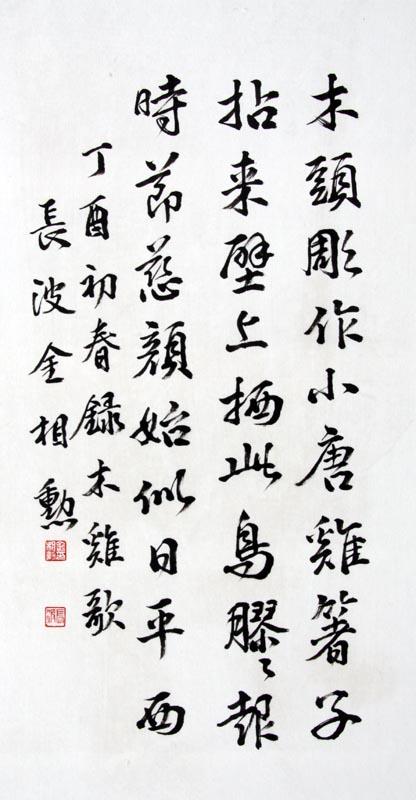 木頭彫作小唐雞箸子
拈来壁上栖此鳥膠々報
時節慈顔始似日平西
丁酉初春録木雞歌
長波金相勲